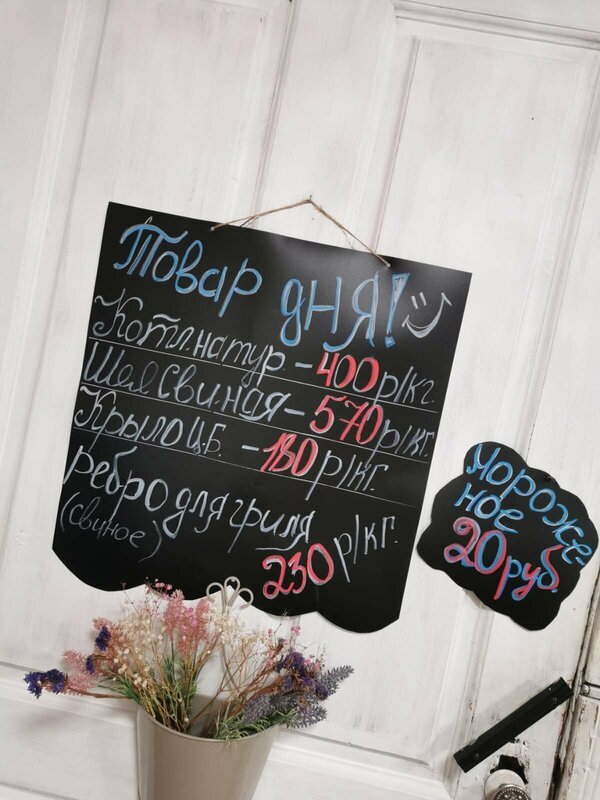 Товар дня!
Котл.натур. - 400р/кг.
Шея Свиная - 570р/кг.
Крыло Ц.Б. - 180р/кг.
Ребро для гриля
(свиное) 230 р/кг.
Мороже-
ное
20руб.